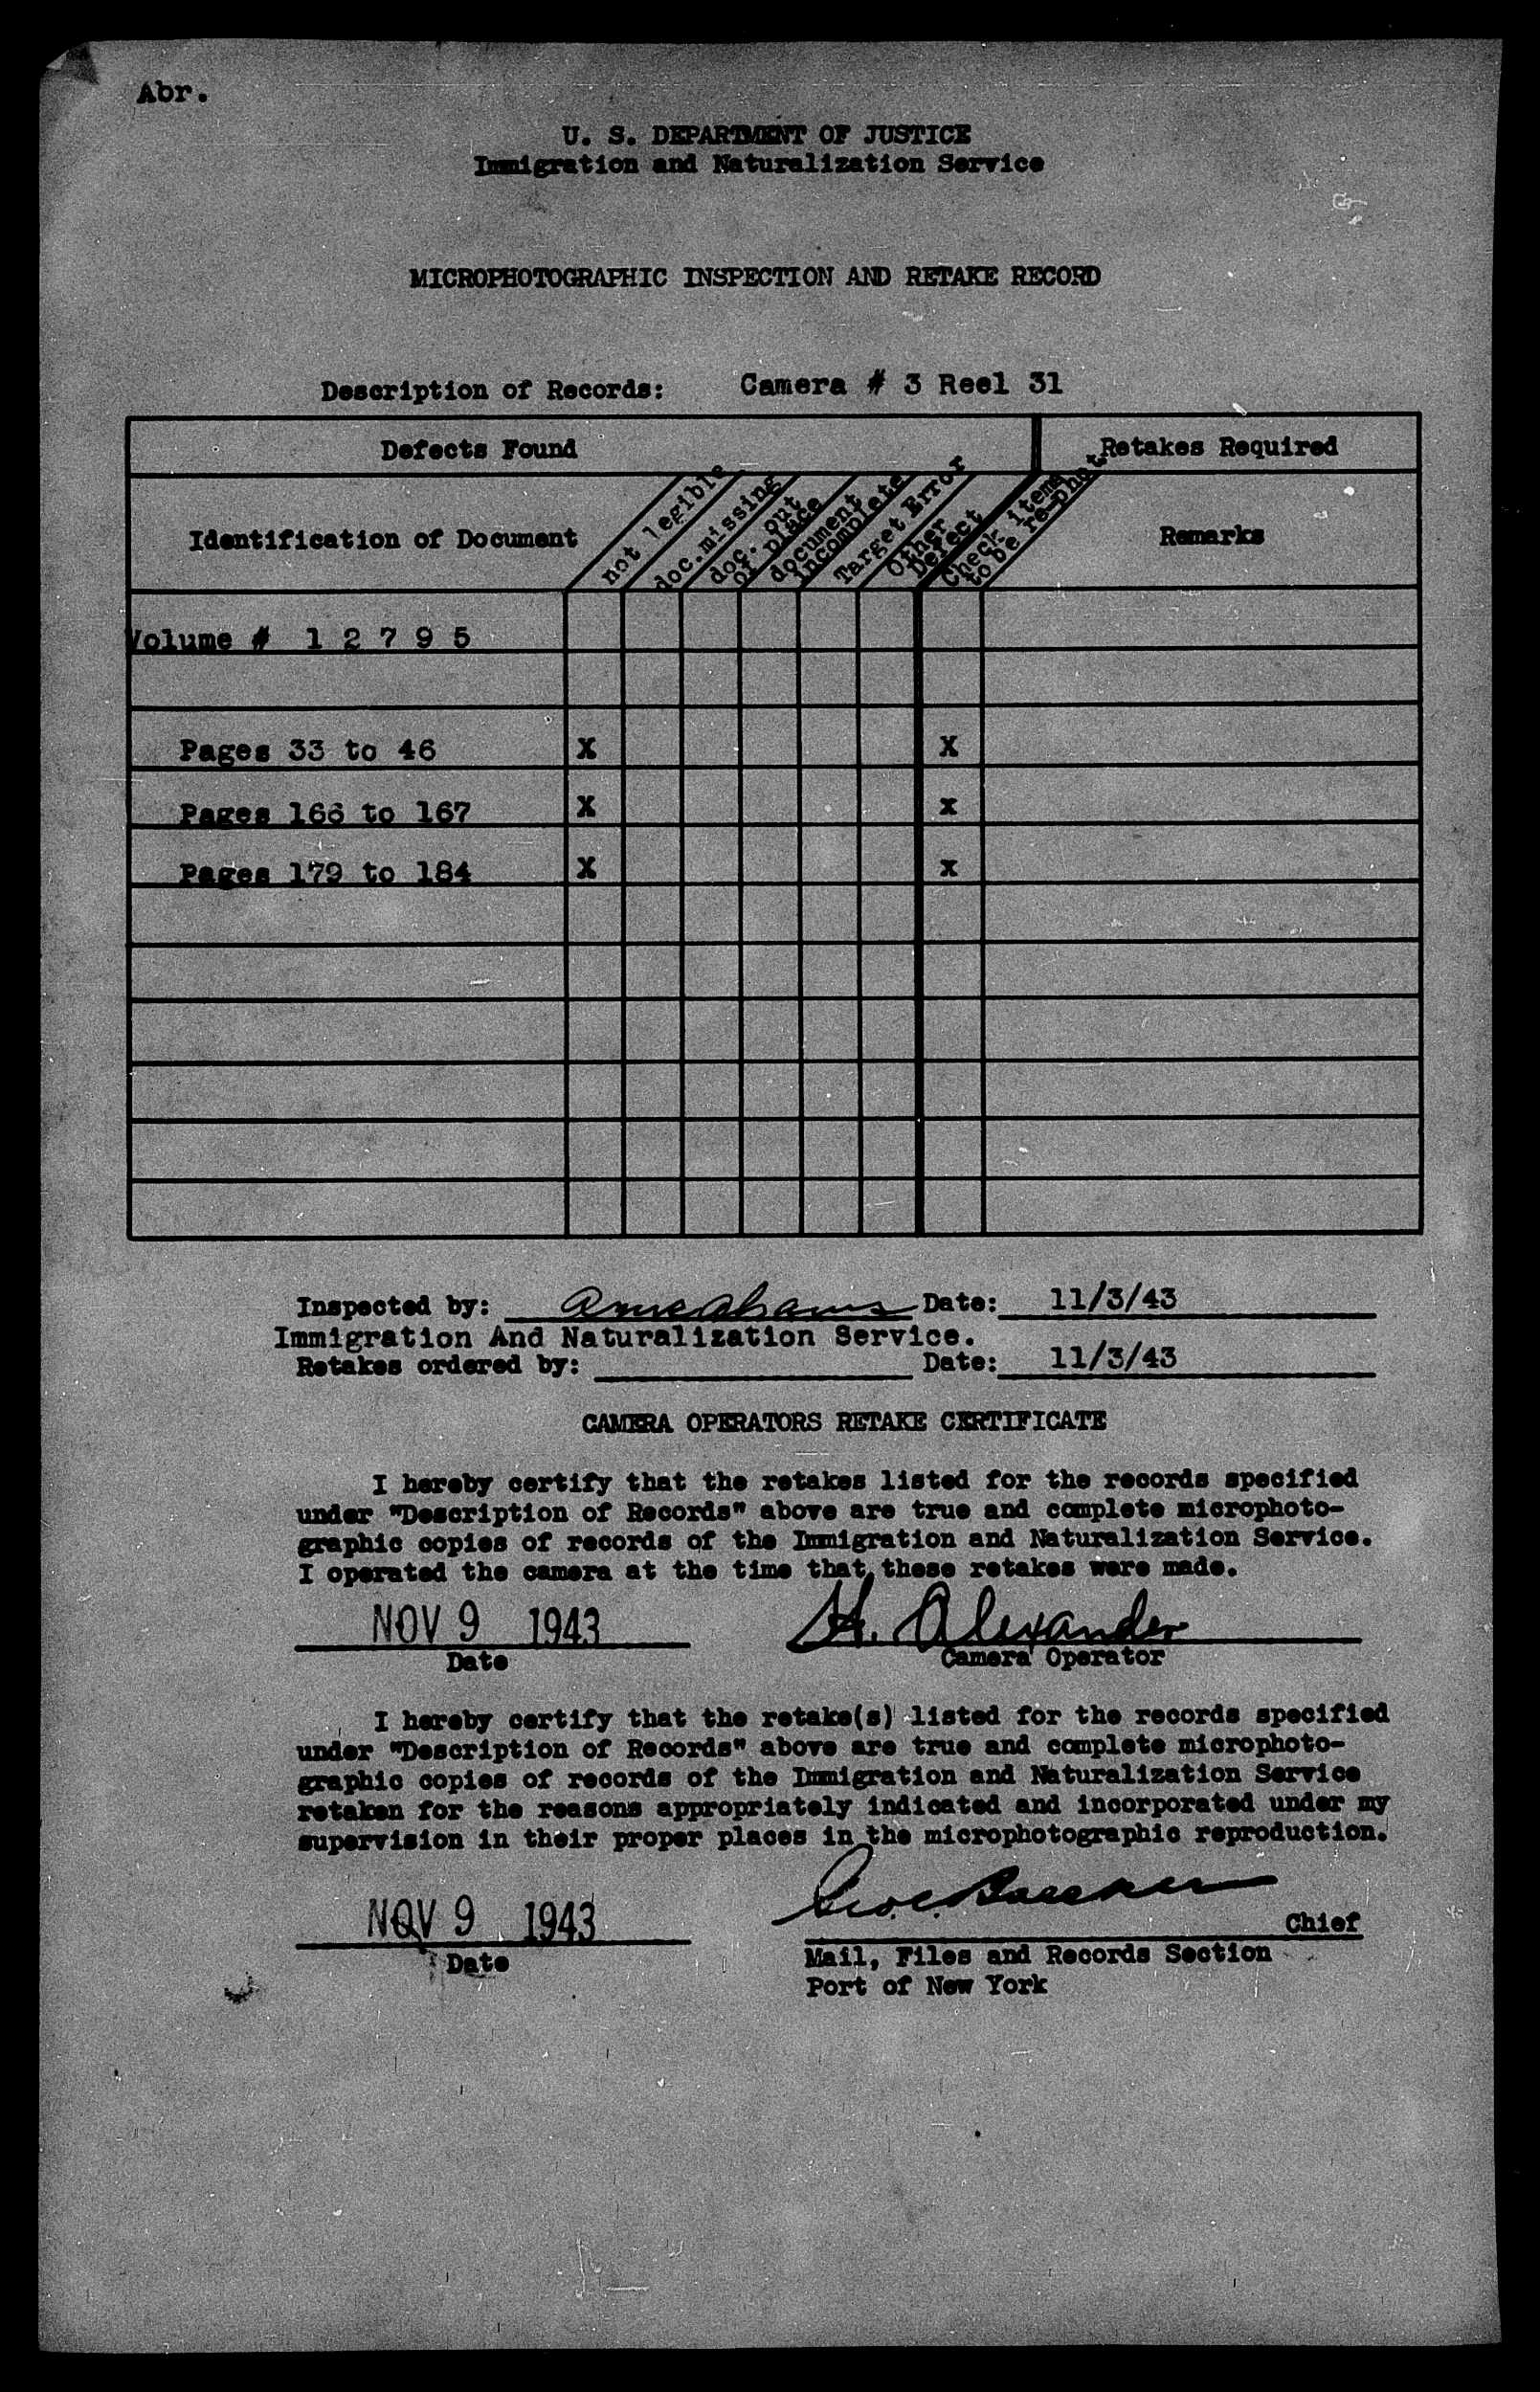 Abr.
U. S. DEPARTMENT OF JUSTICE
Immigration and Naturalization Service
MICROPHOTOGRAPHIC INSPECTION AND RETAKE RECORD
Description of Records: Camera # 3 Reel 31
Defects Found Retakes Required
Identification of Document
not legible
doc. missing
doc. out
of place
document
incomplete
Target Error
Other
Defect
Check items
to be re-phot
Remarks
Volume # 1 2 7 9 5
Pages 33 to 46 X X
Pages 166 to 167 X x
Pages 179 to 184 X x
Inspected by: Date: 11/3/43
Immigration And Naturalization Service.
Retakes ordered by: Date: 11/3/43
CAMERA OPERATORS RETAKE CERTIFICATE
I hereby certify that the retakes listed for the records specified
under "Description of Records" above are true and complete microphoto-
graphic copies of records of the Immigration and Naturalization Service.
I operated the camera at the time that these retakes were made.
NOV 9 1943 H. Alexander
Date Camera Operator
I hereby certify that the retake(s) listed for the records specified
under "Description of Records" above are true and complete microphoto-
graphic copies of records of the Immigration and Naturalization Service
retaken for the reasons appropriately indicated and incorporated under my
supervision in their proper places in the microphotographic reproduction.
NOV 9 1943
Chief
Date Mail, Files and Records Section
Port of New York